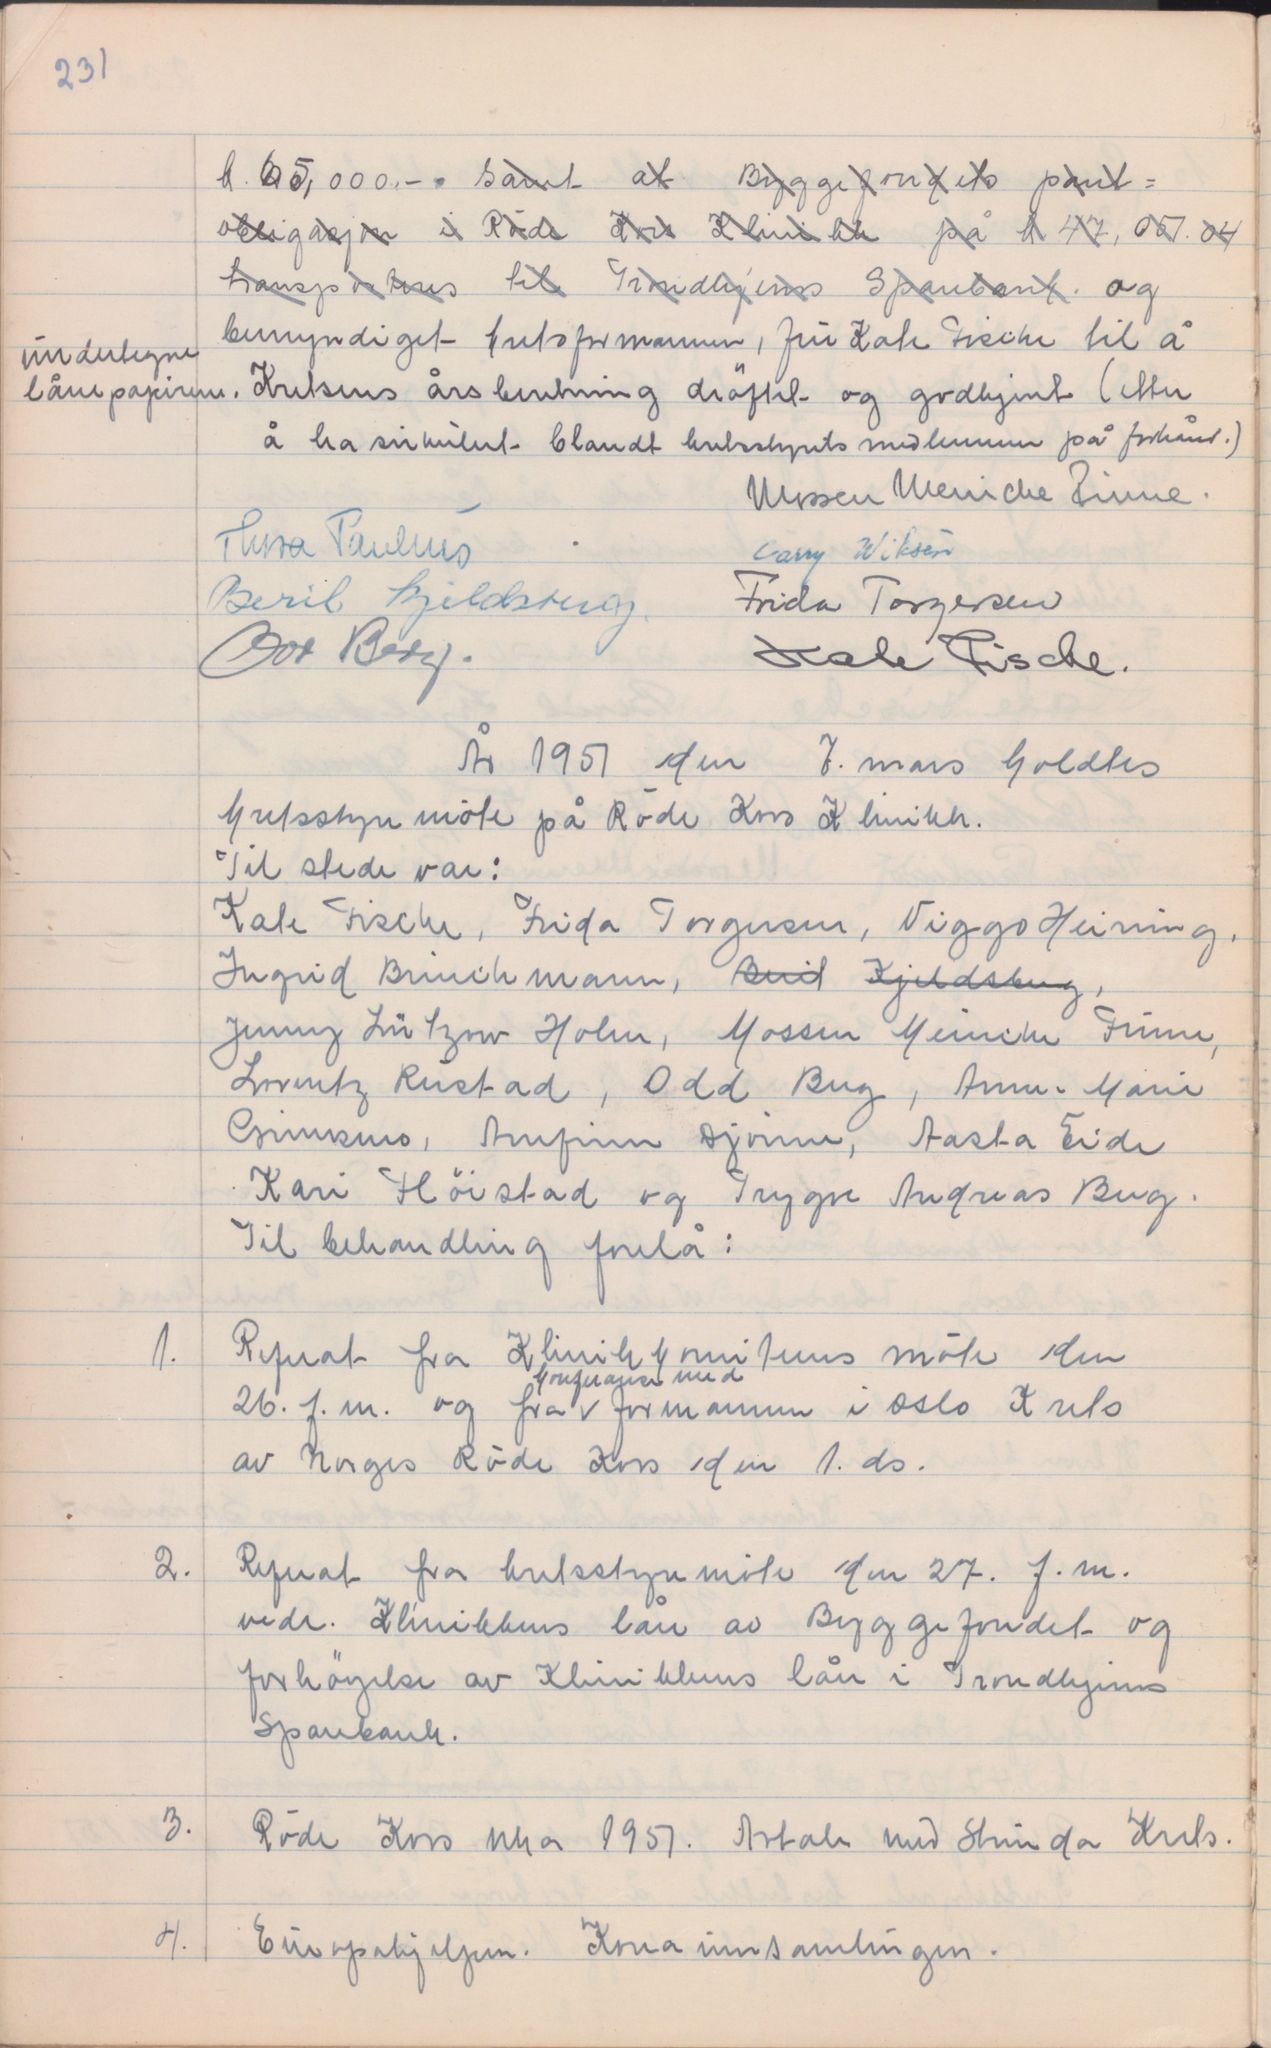 231
k. 65,000.-. Samt at Byggefondets pant=
obligasjon i Röde Kors Klinikk på k 47,051.04
transporteres til Trondhjems Sparebank. og
bemyndiget kretsformannen, fru Kate Fische til å
undertegne
lånepapirene. Kretsens årsberetning dröftet og godkjent (etter
å ha sirkulert blandt kretsstyrets medlemmer på forhånd.)
Mossen Meniche Finne.
Thora Paulius
Carry Wiksén
Beril Kjeldsberg.
Frida Torgersen
Odd Berg.
Kate Fische.
År 1951 den 7. mars holdtes
kretsstyremöte på Röde Kors Klinikk.
Til stede var:
Kate Fische, Frida Torgersen, Viggo Heirning,
Ingrid Brinchmann, Beril Kjeldsberg,
Jenny Lützow Holm, Mossen Meniche Finne,
Lorentz Rustad, Odd Berg, Anne-Marie
Arnfinn Sjömo, Aasta Eide
Kari Höistad og Trygve Andreas Berg.
Til behandling forelå:
1. Referat fra Klinikkomiteens möte den
konferanse med
26. f.m. og fra v formannen i Oslo Krets
av Norges Röde Kors den 1. ds.
2. Referat fra kretsstyremöte den 27. f.m.
vedr. Klinikkens lån av Byggefondet og
forhöyelse av Klinikkens lån i Trondhjems
Sparebank.
3. Röde Kors uka 1951. Avtale med Strinda Krets.
4. Europahjelpen. Korea innsamlingen.